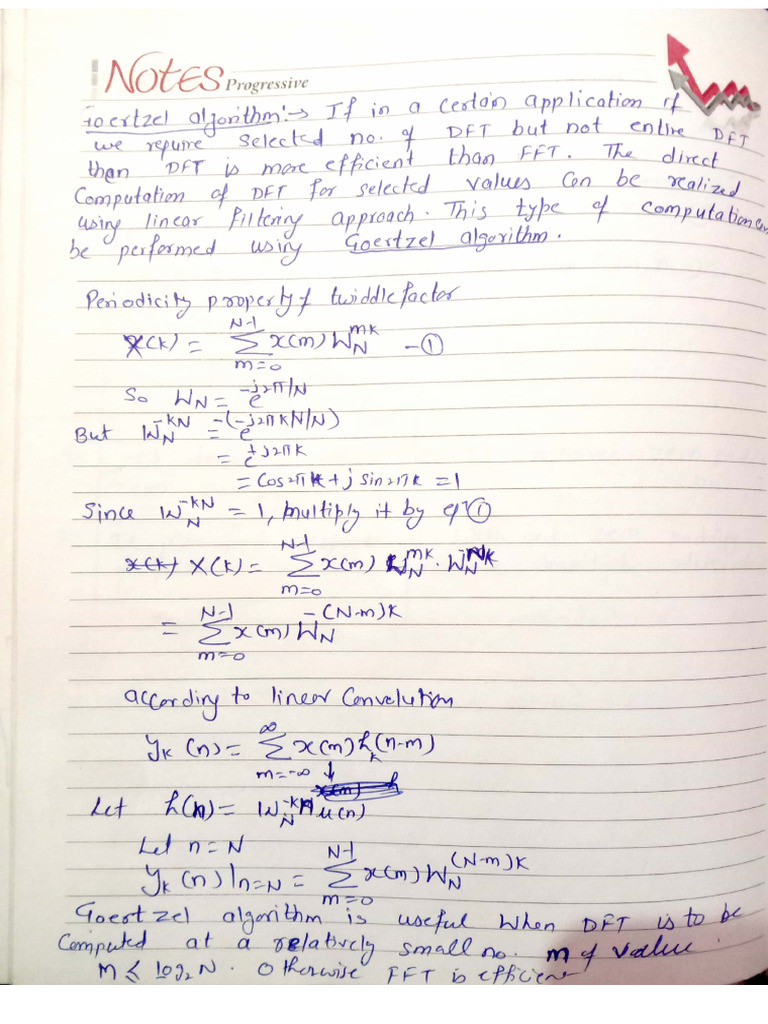 NOTES Progressive
Goertzel algorithm:→ If in a certain application if
we require selected no. of DFT but not entire DFT
then DFT is more efficient than FFT. The direct
Computation of DFT for selected values can be realized
using linear filtering approach. This type of computation can
be performed using Goertzel algorithm.
Periodicity property of twiddle factor
X(k) = \sum_{m=0}^{N-1} x(m) W_N^{mk} - ①
So W_N = e^{-j2π/N}
But W_N^{-kN} = e^{-(-j2πkN/N)}
= e^{+j2πk}
= Cos2πk + j sin2πk = 1
Since W_N^{-kN} = 1, multiply it by eqn ①
X(k) = \sum_{m=0}^{N-1} x(m) W_N^{mk} . W_N^{-Nk}
= \sum_{m=0}^{N-1} x(m) W_N^{-(N-m)k}
according to linear Convolution
y_k(n) = \sum_{m=-∞}^{∞} x(m) h_k(n-m)
Let h(n) = W_N^{-kn} u(n)
Let n = N
y_k(n)|_{n=N} = \sum_{m=0}^{N-1} x(m) W_N^{(N-m)k}
Goertzel algorithm is useful when DFT is to be
Computed at a relatively small no. m of value.
M ≤ log_2 N. Otherwise FFT is efficient